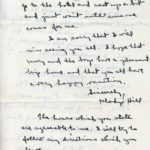 go to the hotel and rest up a bit
and just wait until someone
comes for me.
I am sorry that I will
miss seeing you all. I hope that
Mary and the boys have a pleasant
trip home and that you all have
a very happy vacation.
Sincerely,
Hill
The hours which you state
are agreeable to me. I will try to
follow any directions which you